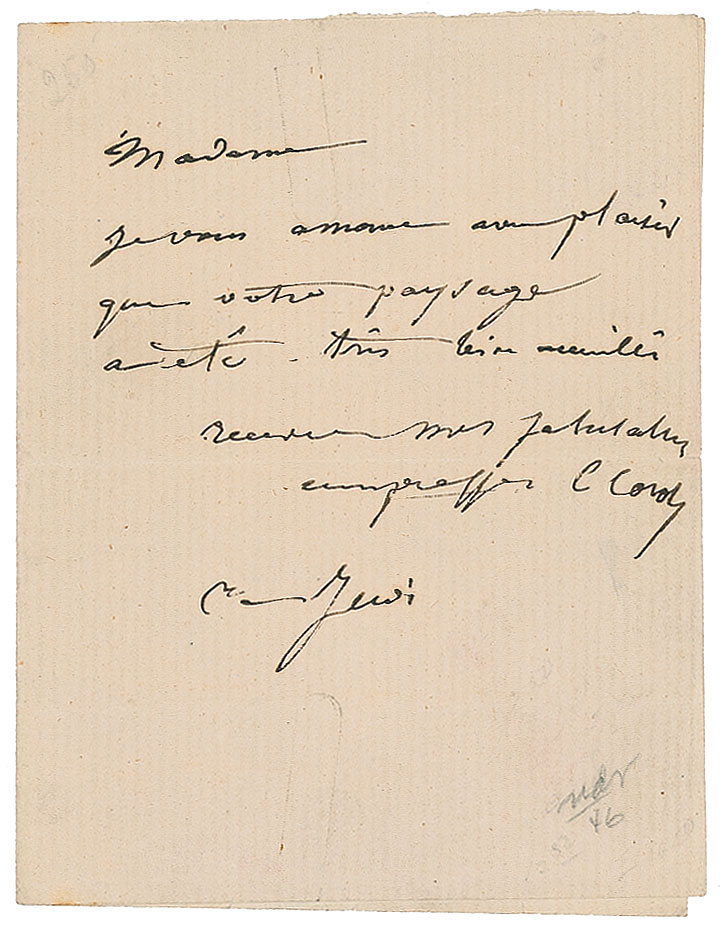 Madame
je vous annonce avec plaisir
que votre paysage
a été très bien accueilli
recevez mes salutations
empressées C Corot
ce Jeudi
46